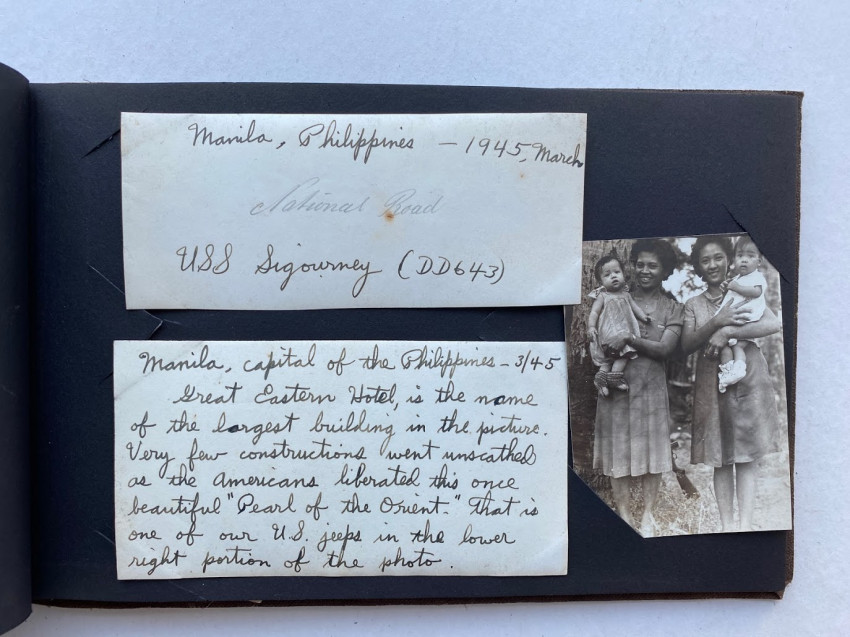 Manila, Philippines - 1945, March
National Road
USS Sigourney (DD643)
Manila, capital of the Philippines - 3/45
Great Eastern Hotel, is the name
of the largest building in the picture.
Very few constructions went unscathed
as the Americans liberated this once
beautiful "Pearl of the Orient." That is
one of our U.S. jeeps in the lower
right portion of the photo.